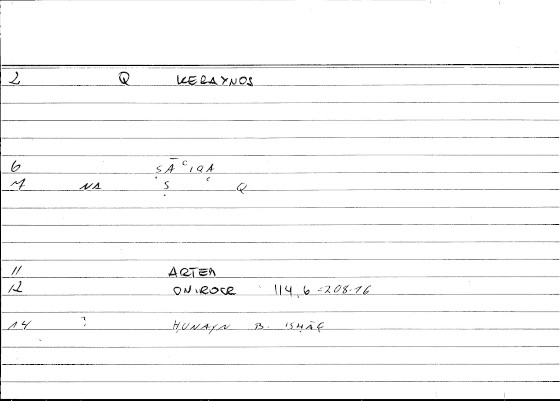 2 Q KERAYNOS
6 ṢĀʿIQA
7 NA Ṣ Q
11 ARTEM
12 ONIROCR 114,6 = 208.16
14 ? ḤUNAYN B. ISḤĀQ